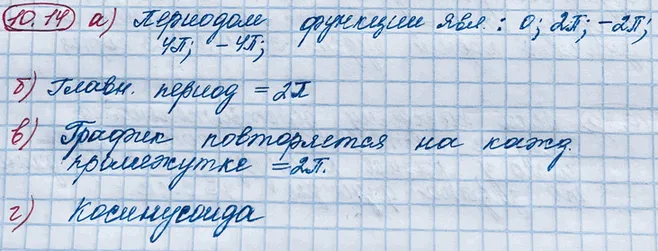 10.14 а) Периодом функции явл.: 0; 2П; -2П;
4П; -4П;
б) Главн. период = 2П
в) График повторяется на кажд.
промежутке = 2П.
г) Косинусоида